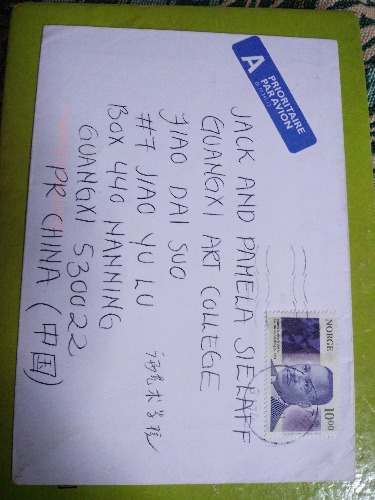 A PRIORITAIRE
PAR AVION
JACK AND PAMELA SIERAFF
GUANGXI ART COLLEGE
JIAO DAI SUO
#7 JIAO YU LU
BOX 440 NANNING
GUANGXI 530022
PR CHINA (中国)
NORGE
10.00